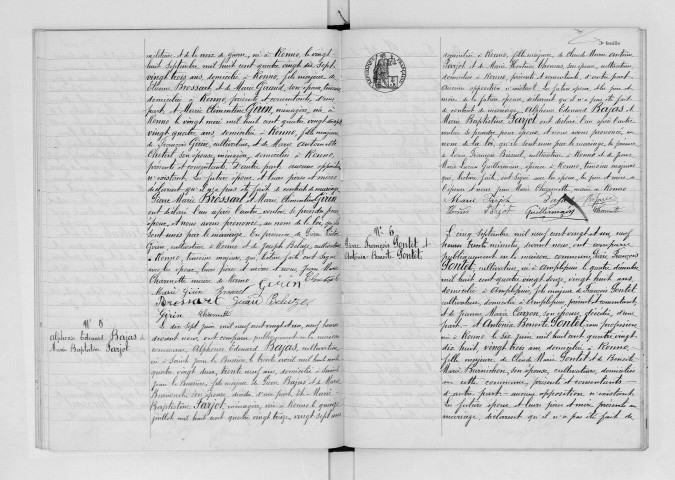 militaire et de la croix de guerre, né à Ronno le vingt
huit Septembre mil huit cent quatre vingt dix Sept,
vingt trois ans, domicilié à Ronno, fils majeur de
Brossart et de Marie son épouse,
domiciliés à Ronno présents et consentants, d'une
part. Et Marie Clémentine Girin, ménagère, née à
Ronno le vingt mai mil huit cent quatre vingt dix sept
vingt quatre ans, domiciliée à Ronno, fille majeure
de François Girin, cultivateur, et de Marie Antoinette
son épouse, ménagère, domiciliés à Ronno,
présents et consentants, d'autre part. Aucune opposition
n'existant, les futurs époux et leurs pères et mères
déclarent qu'il n'a pas été fait de contrat de mariage.
Pierre Marie Brossart et Marie Clémentine Girin
ont déclaré l'un après l'autre vouloir se prendre pour
époux et nous avons prononcé au nom de la loi, qu'ils
sont unis par le mariage. En présence de
Girin, cultivateur à Ronno et de Joseph cultivateur
à Ronno, témoins majeurs, qui, lecture faite ont signé avec
les époux, leurs pères et mères et nous Jean Marie
Charmette maire de Ronno
Girin
Marie Girin
Brossart
Girin Charmette
N° 5
Alphonse Edouard Bajas et
Marie Baptistine Farjot
Le dix Sept juin mil neuf cent vingt et un, neuf heures
devant nous, ont comparu publiquement en la maison
commune, Alphonse Edouard Bajas, cultivateur,
né à Saint Just la le trente avril mil huit cent
quatre vingt deux, trente neuf ans, domicilié à Saint
Just la fils majeur de Pierre Bajas et de Marie
son épouse, d'une part. Et Marie
Baptistine Farjot, ménagère, née à Ronno le quinze
juillet mil huit cent quatre vingt treize, vingt sept ans
feuille
domiciliée à Ronno, fille majeure de Claude Marie Antoine
Farjot et de Marie son épouse, cultivateurs,
domiciliés à Ronno, présents et consentants, d'autre part.
Aucune opposition n'existant. Les futurs époux et les père et mère
de la future épouse, déclarent qu'il n'a pas été fait
de contrat de mariage. Alphonse Edouard Bajas et
Marie Baptistine Farjot ont déclaré l'un après l'autre
vouloir se prendre pour époux et nous avons prononcé, au
nom de la loi, qu'ils sont unis par le mariage. En présence
de François cultivateur à Ronno et de
Marie Guillermin, à Ronno, témoins majeurs
qui, lecture faite, ont signé avec les époux, les père et mère de
l'épouse et nous Jean Marie Charmette maire à Ronno
Marie Farjot
Farjot Guillermin Charmette
N° 6
Pierre François Gontet et
Antonia Benoite Gontet
Le cinq Septembre mil neuf cent vingt et un neuf
heures trente minutes, devant nous, ont comparu
publiquement en la maison commune, Pierre François
Gontet, cultivateur, né à Amplepuis le quatre décembre
mil huit cent quatre vingt douze, vingt huit ans
domicilié à Amplepuis, fils majeur de François Gontet
cultivateur, domicilié à Amplepuis, présent et consentant,
et de Jeanne Marie Carron, son épouse, décédée, d'une
part. Et Antonia Benoite Gontet, sans profession
née à Ronno le dix juin mil huit cent quatre vingt
dix huit, vingt trois ans, domiciliée à Ronno
fille majeure de Claude Marie Gontet et de Benoite
Marie son épouse, cultivateurs, domiciliés
en cette commune, présents et consentants
d'autre part. Aucune opposition n'existant,
les futurs époux et leurs père et mère présents au
mariage, déclarent qu'il n'a pas été fait de